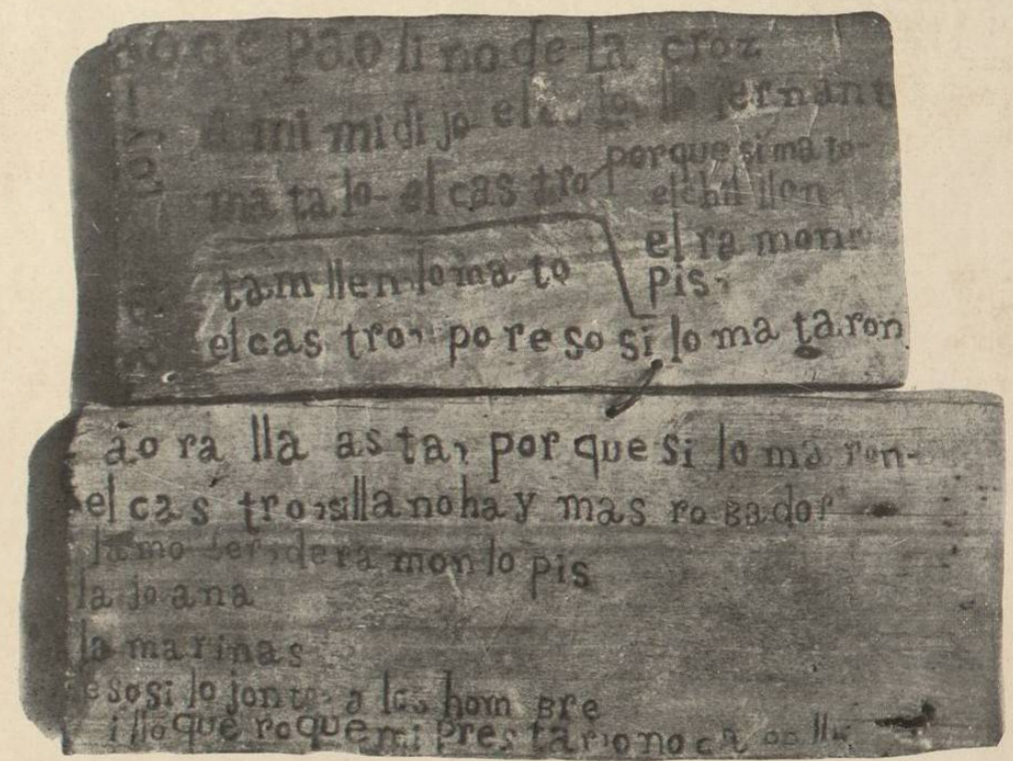 paolino de la croz
a mi mi dijo el fernant
ma ta lo- el cas tro porque si ma to-
el chil llon
el ra mon
tam llen lo ma to pis,
el cas tro, po re so si lo ma ta.ron
ao ra lla as ta, por que si lo ma ron-
el cas tro, silla no hay mas ro Bador
la mo ler, de ra mon lo pis
la jo ana
la marinas
eso si lo jonto a los hom Bre
i llo que ro que mi Pres tar o no